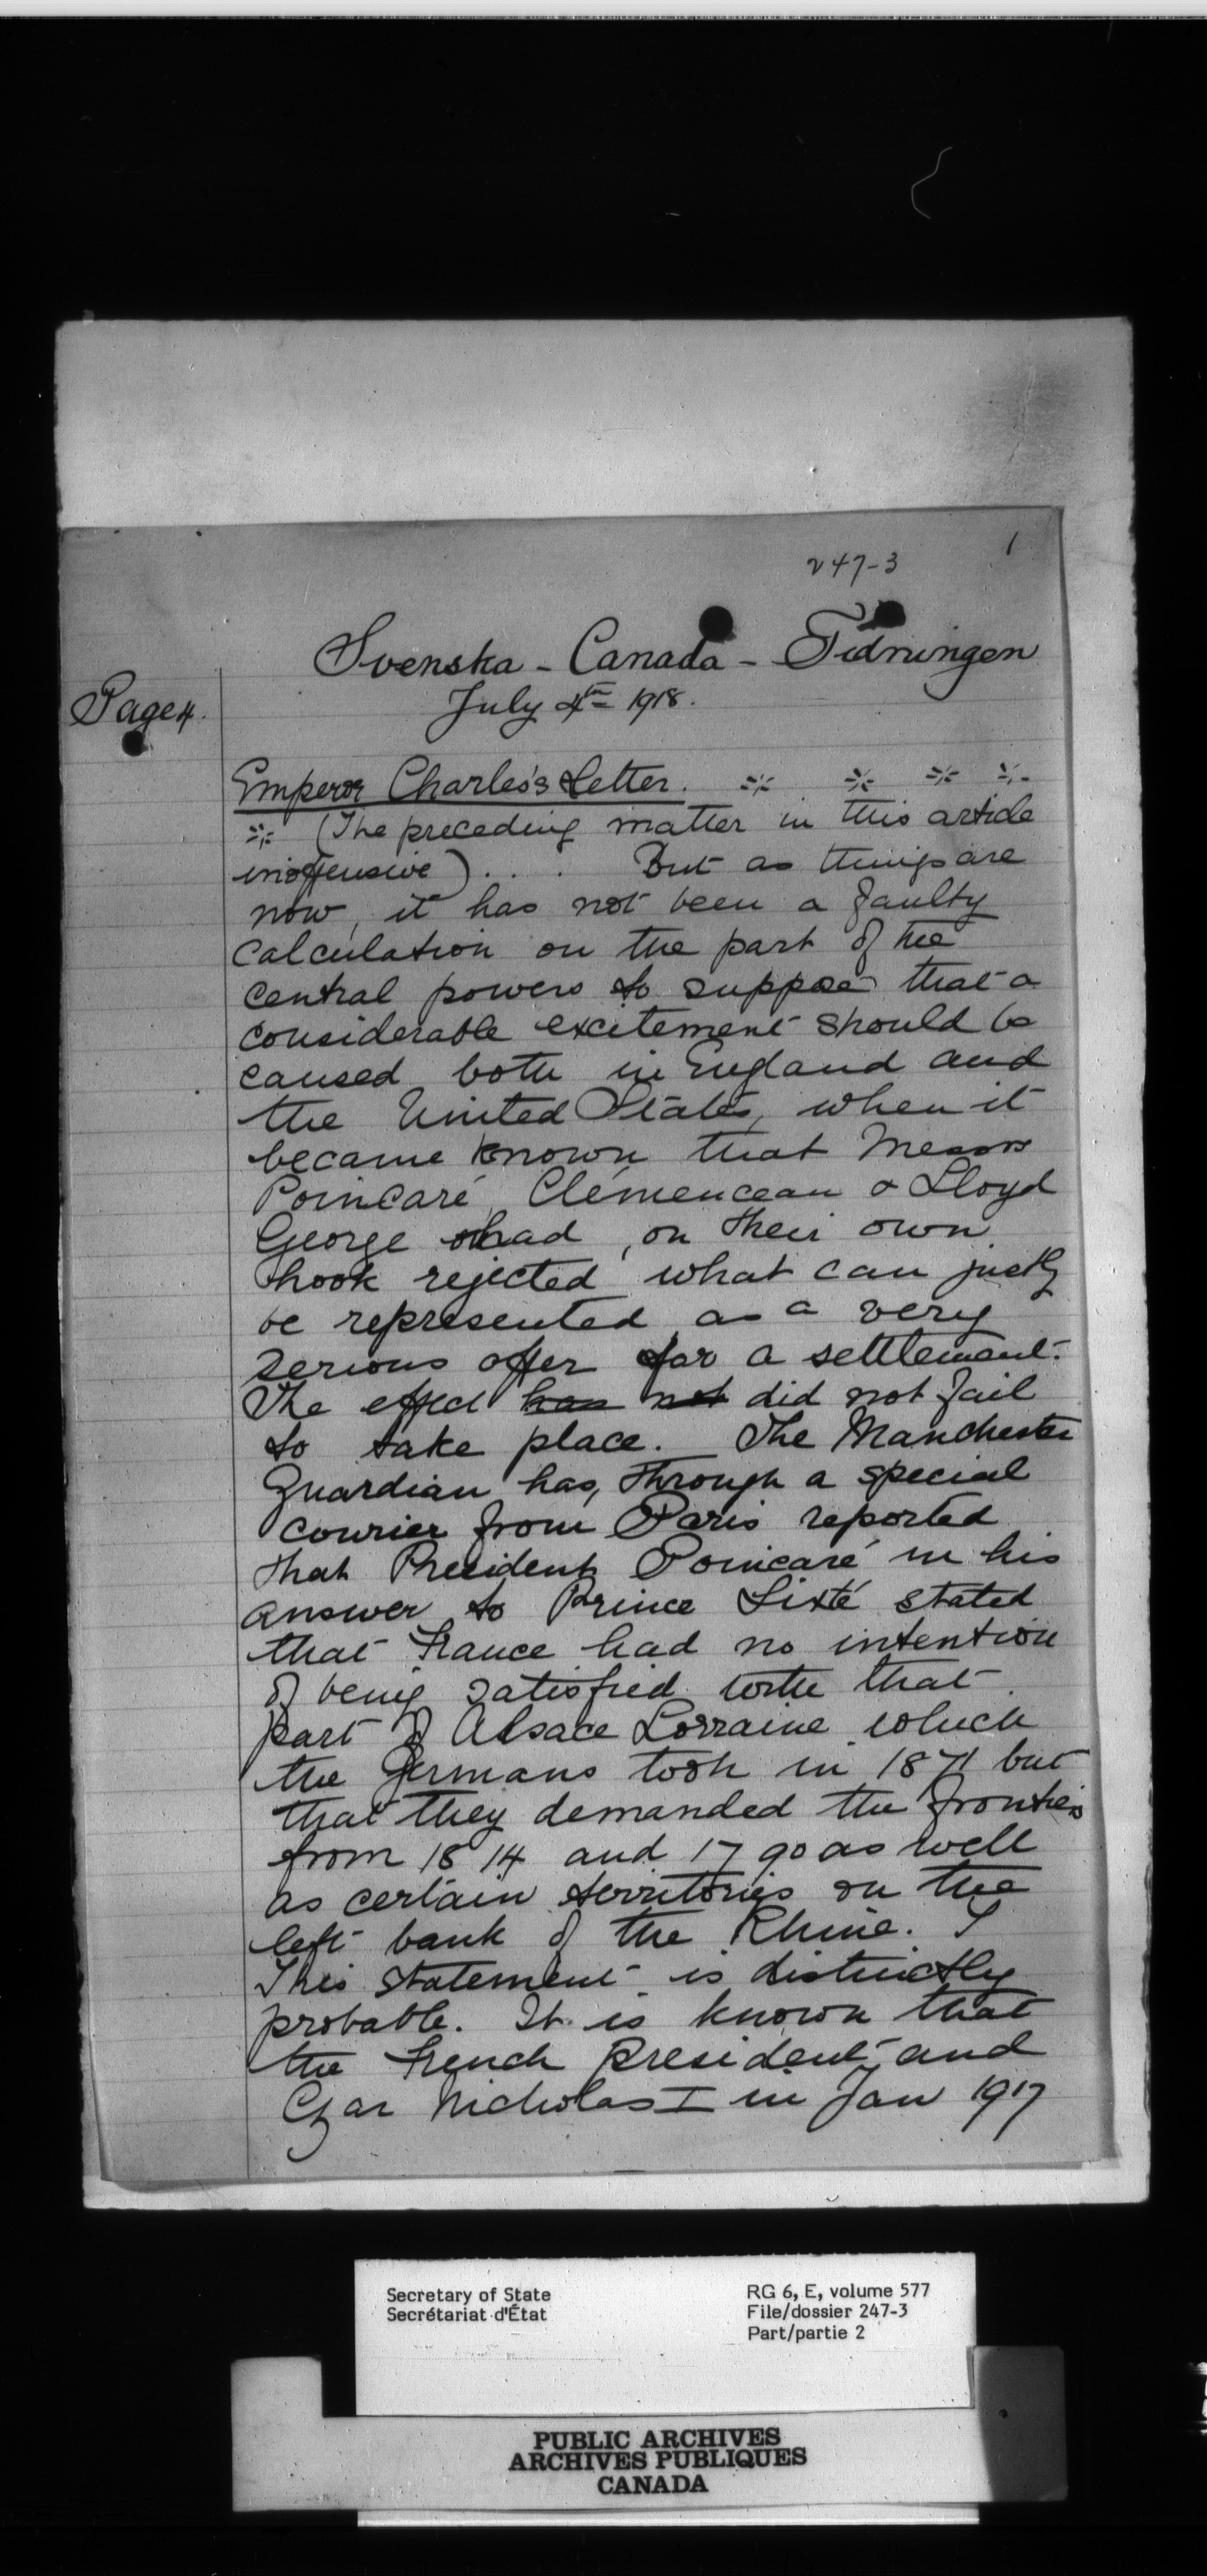 247-3
1
Svenska - Canada - Tidningen
July 4th 1918.
Page 4.
Emperor Charles's Letter.
(The preceding matter in this article
inoffensive) . . . But as things are
now, it has not been a faulty
calculation on the part of the
central powers to suppose that a
considerable excitement should be
caused both in England and
the United States, when it
became known that Messrs
Poincaré, Clémenceau & Lloyd
George had, on their own
hook rejected what can justly
be represented as a very
serious offer for a settlement.
The effect has not did not fail
to take place. The Manchester
Guardian has, through a special
courier from Paris reported
that President Poincaré in his
answer to Prince Sixté stated
that France had no intention
of being satisfied with that
part of Alsace Lorraine which
the Germans took in 1871 but
that they demanded the frontiers
from 1814 and 1790 as well
as certain territories on the
left bank of the Rhine.
This statement is distinctly
probable. It is known that
the French President and
Czar Nicholas I in Jan 1917
Secretary of State
Secrétariat d'État
RG 6, E, volume 577
File/dossier 247-3
Part/partie 2
PUBLIC ARCHIVES
ARCHIVES PUBLIQUES
CANADA